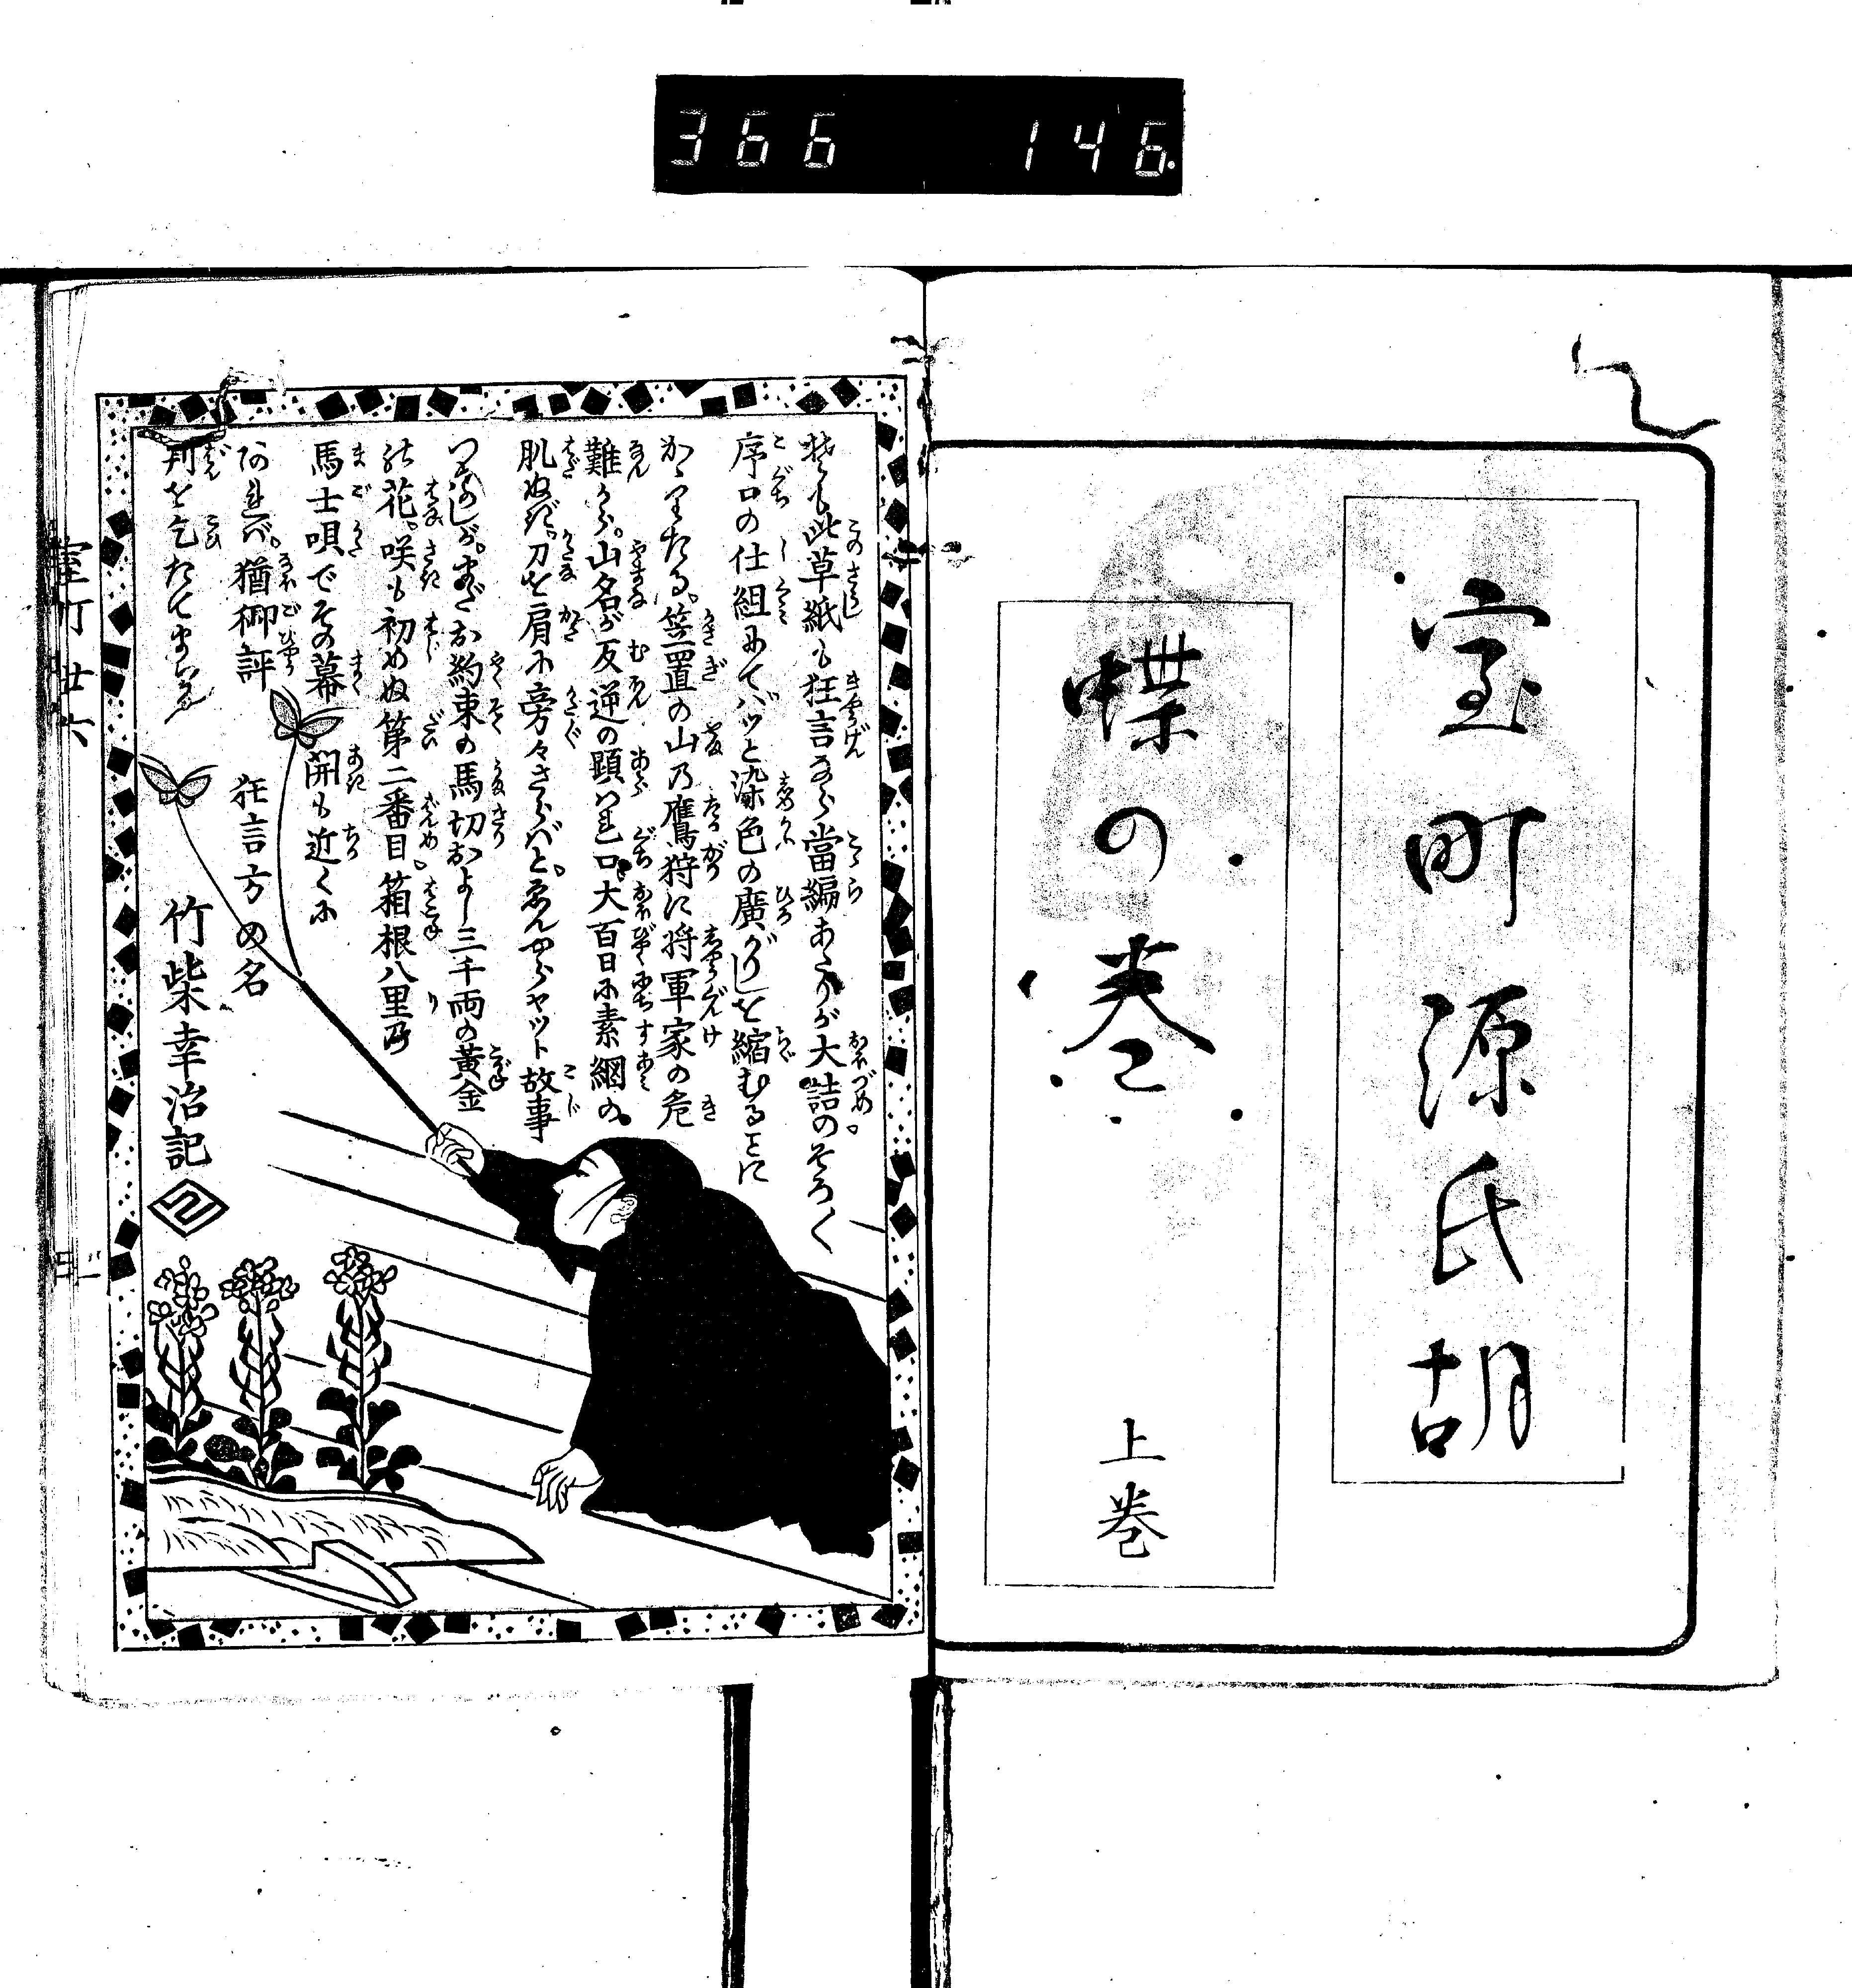 366 146
室町源氏胡
蝶の巻
上巻
此草紙も狂言なら當編あたりが大詰のそろ〱
序口の仕組みてバツと染色の廣がりしを縮むるに
かゝりたる。笠置の山の鷹狩に将軍家の危
難から。山名が反逆の顕はれ口大百日に素網の。
肌ぬぎ。刀を肩に旁々さらバと。ゑんやらヤツト故事
つけしが。まだお約束の馬切およし三千両の黄金
の花。咲も初めぬ第二番目。箱根八里の
馬士唄でその幕開も近くに
あれバ。猶御評
判を乞たてまつる
狂言方の名
竹柴幸治記
室町廿六